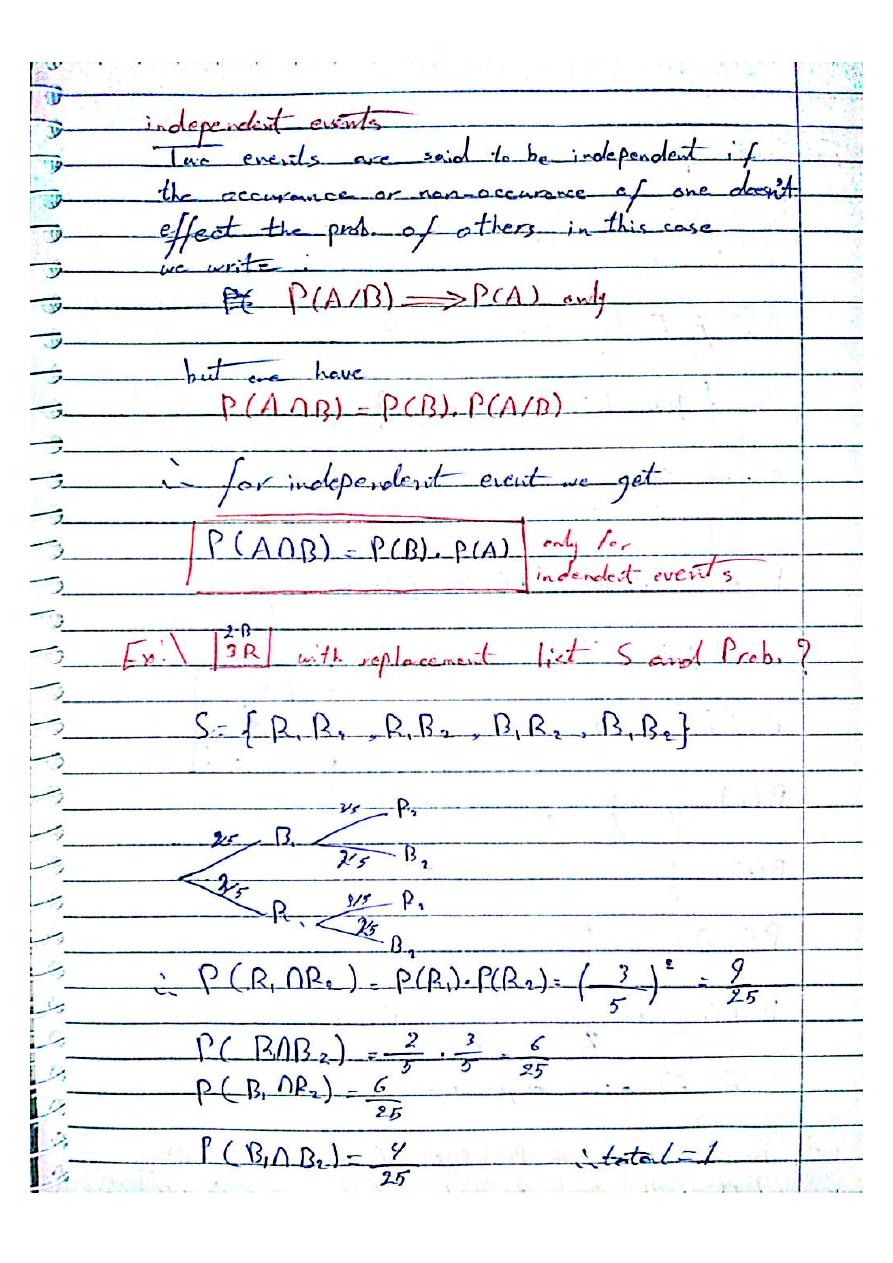 independent events
Two events are said to be independent if
the accurance or non-occurance of one doesn't
effect the prob. of others in this case
we write :
P(A/B) ⟹ P(A) only
but have
P(A∩B) = P(B). P(A/B)
∴ for independent event we get
P(A∩B) = P(B). P(A) only for
indendent events
2-B
Ex:\ 3R with replacement list S and Prob. ?
S = { R₁R₂ , R₁B₂ , B₁R₂ , B₁B₂}
R₂
2/5 B₁
2/5 B₂
3/5 3/5 R₂
R₁ 2/5
B₂
∴ P(R₁∩R₂) = P(R₁).P(R₂) = (3/5)² = 9/25.
P(R∩B₂) = 2/5 . 3/5 = 6/25
P(B₁∩R₂) = 6/25
P(B₁∩B₂) = 4/25 ∴ total = 1